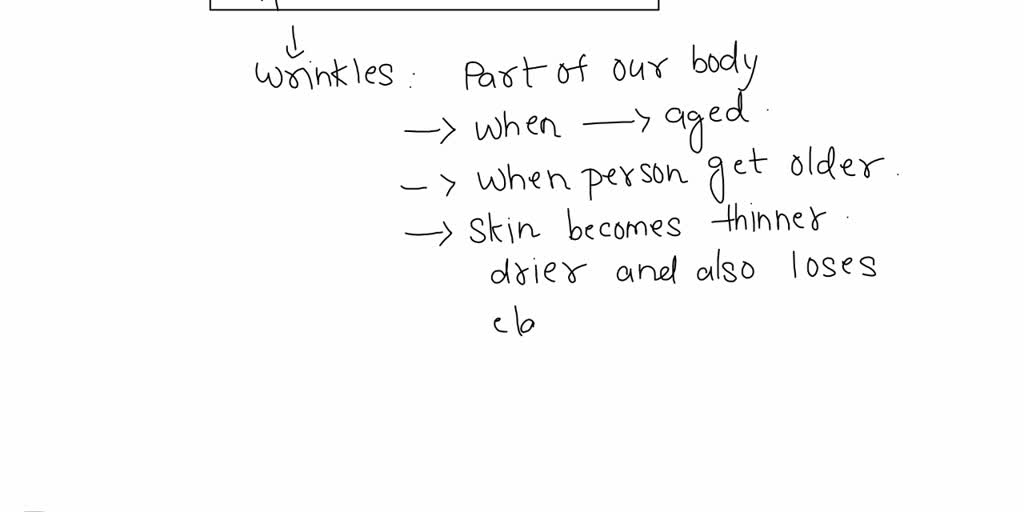 ↓
wrinkles : Part of our body
→ when → aged .
→ when person get older .
→ skin becomes thinner .
drier and also loses
ela